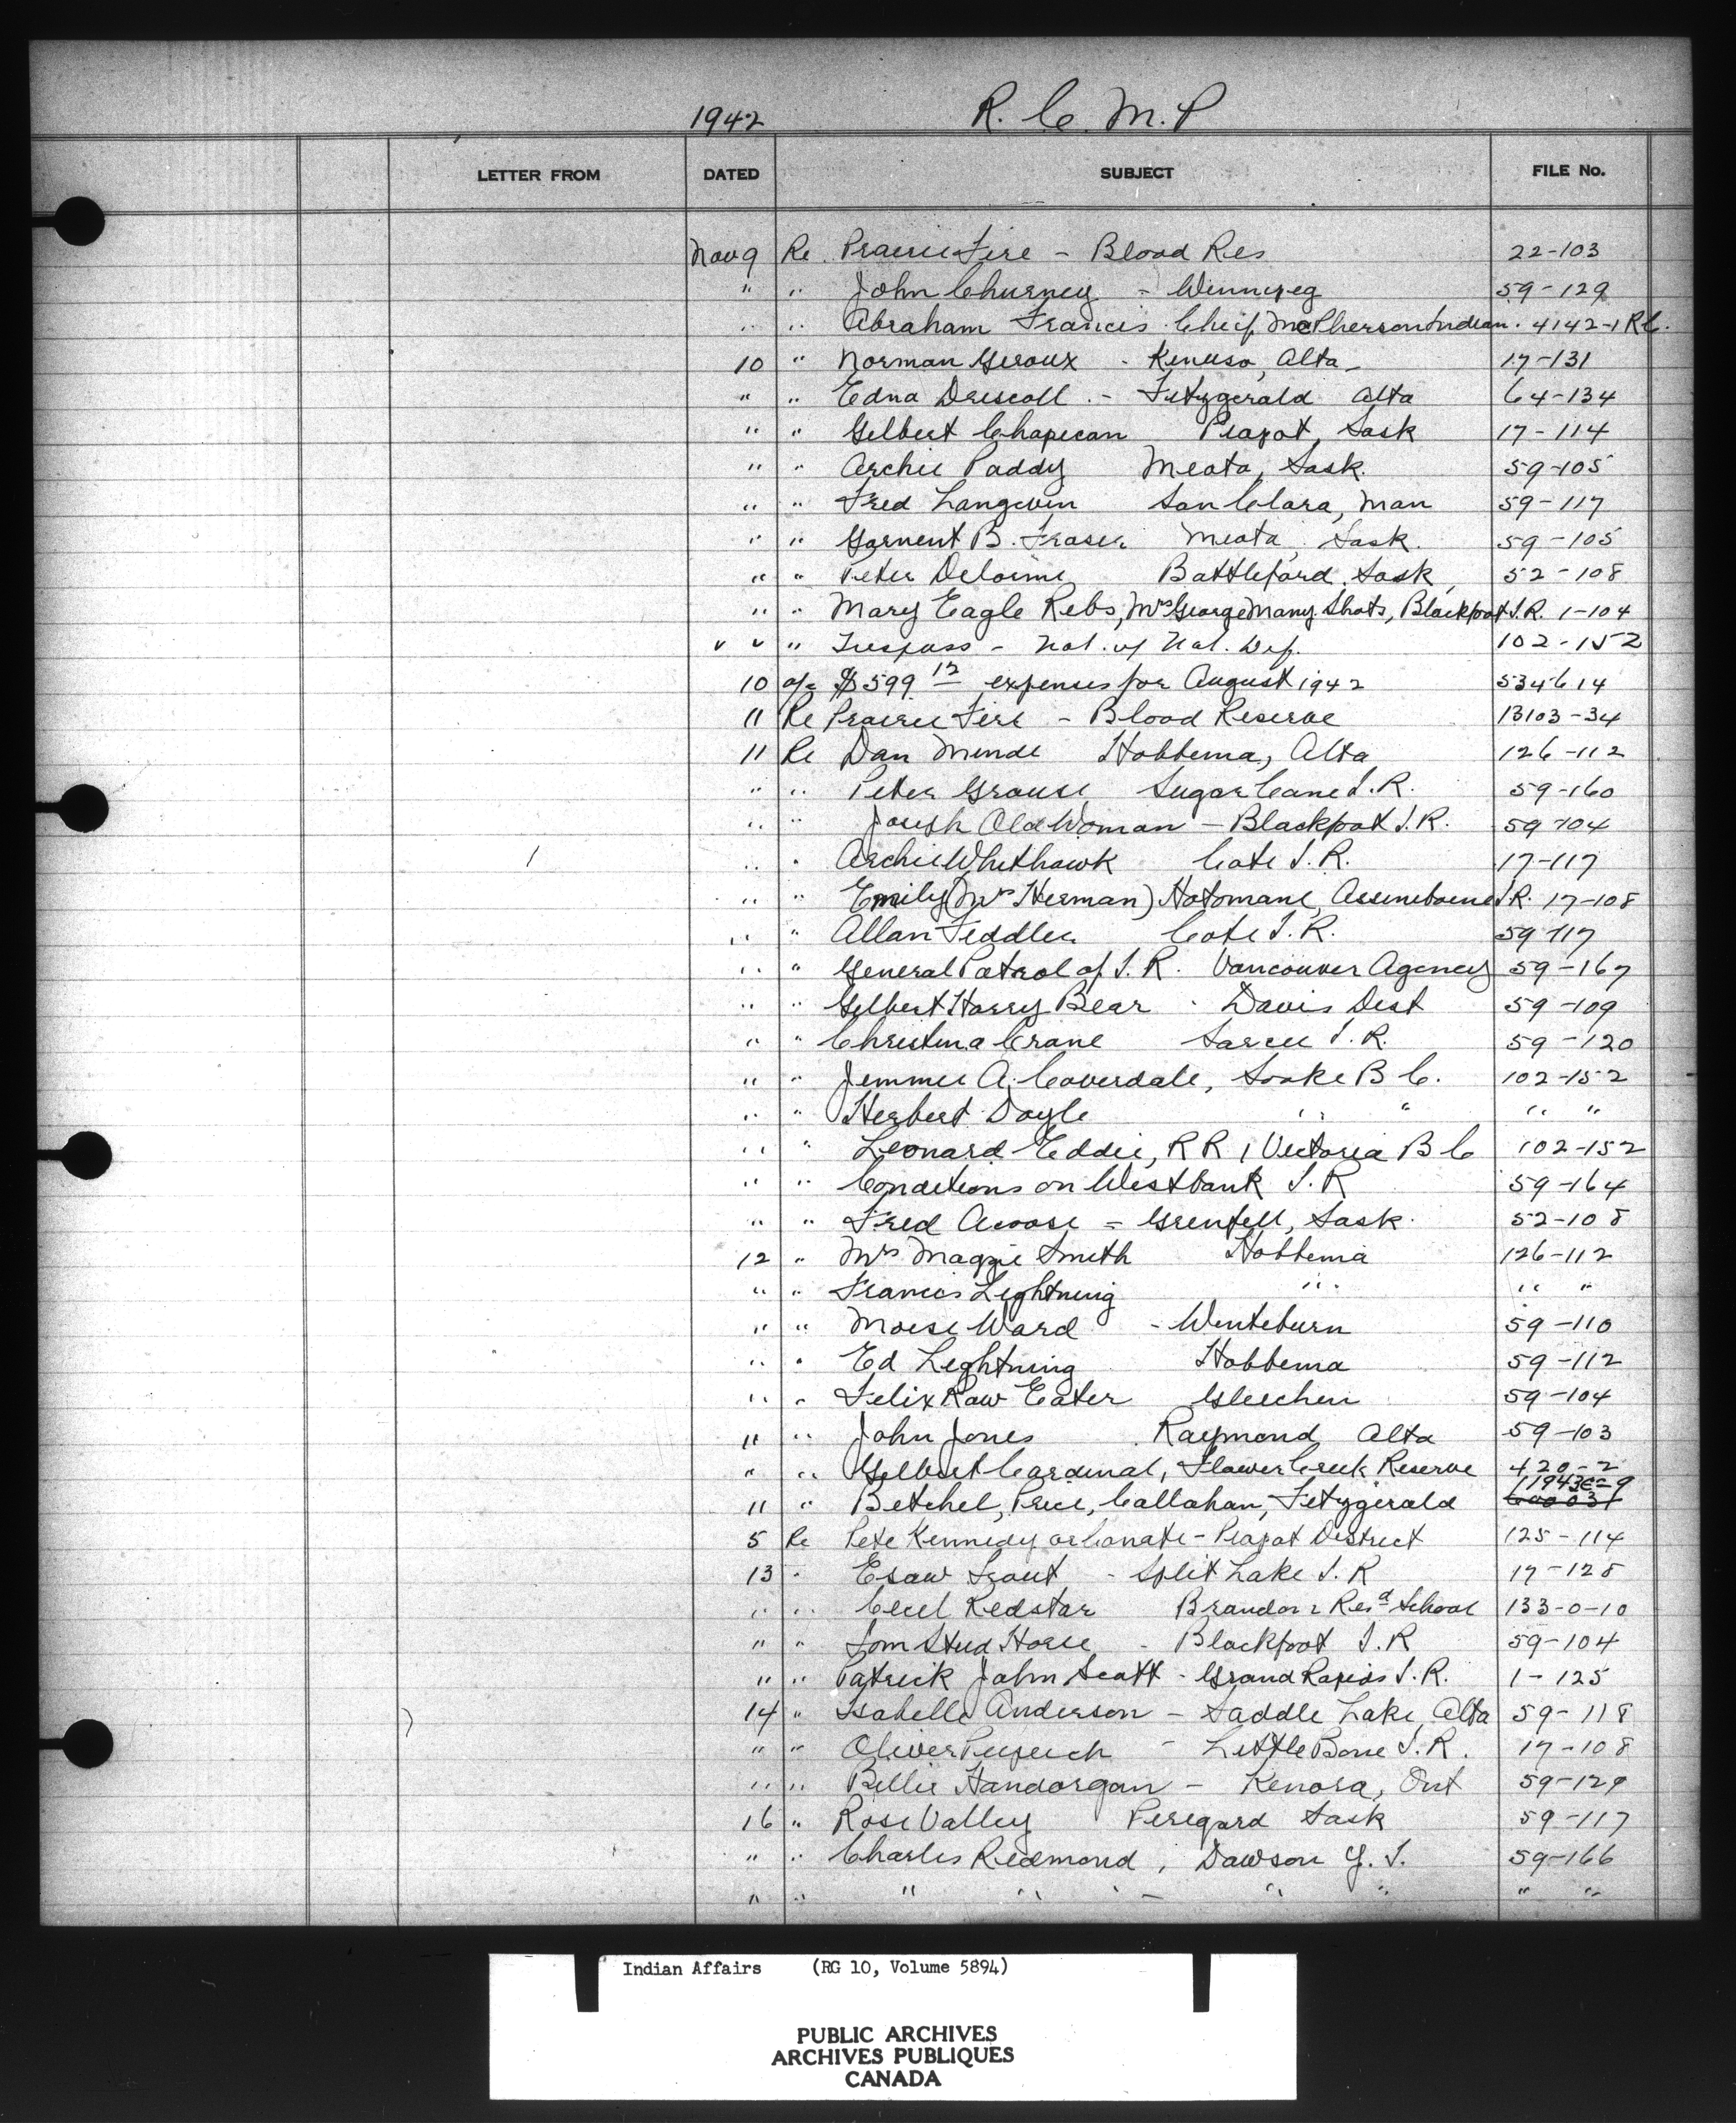 1942 R. C. M. P
LETTER FROM DATED SUBJECT FILE No.
Nov 9 Re Prairie Fire - Blood Res 22-103
" " John Churney - Winnipeg 59-129
" " Abraham Francis Chief McPherson Indian. 4142-1 RC.
10 " Norman Giroux - Kinuso, Alta - 17-131
" " Edna Driscoll - Fitzgerald Alta 64-134
" " Gilbert Chapecan Piapot, Sask 17-114
" " Archie Paddy Meota, Sask. 59-105
" " Fred Langevin San Clara, Man 59-117
" " Garnent B. Fraser Meota, Sask. 59-105
" " Peter Delorme Battleford, Sask, 52-108
" " Mary Eagle Rebs, Mrs George Many Shots, Blackfoot I.R. 1-104
" " " Trespass - Nat. of Nat. Def. 102-152
10 a/c $599 12 expenses for August 1942 534614
11 Re Prairie Fire - Blood Reserve 13103-34
11 Re Dan Minde Hobbema, Alta 126-112
" " Peter Grouse Sugar Cane I.R. 59-160
" " Joseph Old Woman - Blackfoot I.R. 59-104
" " Archie Whithawk Cote I.R. 17-117
" " Emily (Mrs Herman) Hotomane, Assineboine I.R. 17-108
" " Allan Feddler Cote I.R. 59-117
" " General Patrol of I.R. Vancouver Agency 59-167
" " Gilbert Harry Bear - Davis Dist 59-109
" " Christina Crane Sarcee I.R. 59-120
" " Jimmie A. Coverdale, Sooke B C. 102-152
" " Herbert Doyle " " " "
" " Leonard Eddie, R R 1 Victoria B C 102-152
" " Conditions on Westbank I.R 59-164
" " Fred Acoose - Grenfell, Sask. 52-108
12 " Mrs Maggie Smith Hobbema 126-112
" " Francis Lightning " " "
" " Moise Ward - Winteburn 59-110
" " Ed Lightning Hobbema 59-112
" " Felix Raw Eater Gleichen 59-104
" " John Jones Raymond Alta 59-103
" " Gilbert Cardinal, Flower Creek Reserve 420-2
11 " Betchel, Price, Callahan, Fitzgerald 11943E-9
5 Re Pete Kennedy or Canate - Piapot District 125-114
13 " Esaw Trout - Split Lake I.R 17-128
" " Cecil Redstar Brandon Resd School 133-0-10
" " Tom Stud Horse - Blackfoot I.R 59-104
" " Patrick John Scott - Grand Rapids I.R. 1-125
14 " Isabelle Anderson - Saddle Lake, Alta 59-118
" " Oliver - Little Bone I.R. 17-108
" " Billie Handorgan - Kenora, Ont 59-129
16 " Rose Valley Peregard Sask 59-117
" " Charles Redmond, Dawson Y.T. 59-166
" " " " " - " " " "
Indian Affairs (RG 10, Volume 5894)
PUBLIC ARCHIVES
ARCHIVES PUBLIQUES
CANADA